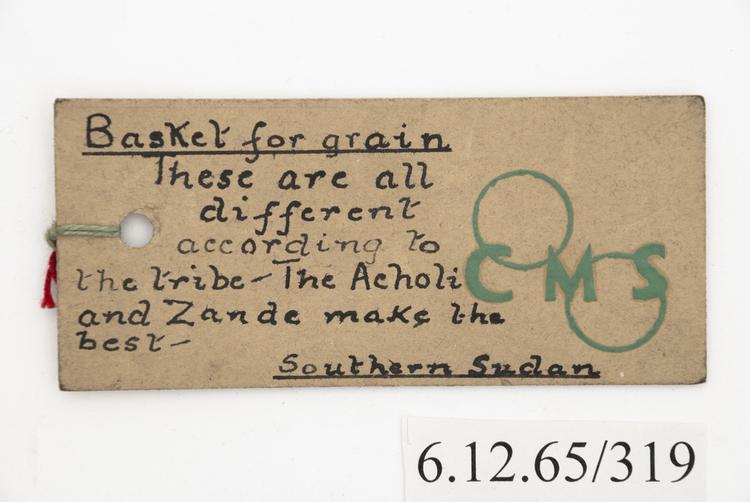 Basket for grain
These are all
different
according to
the tribe - The Acholi
and Zande make the
best -
Southern Sudan
CMS
6.12.65/319